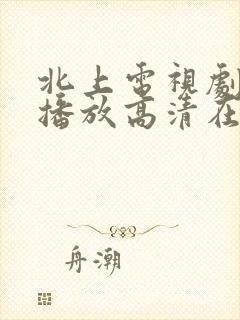 北上電視劇
播放高清在
舟潮